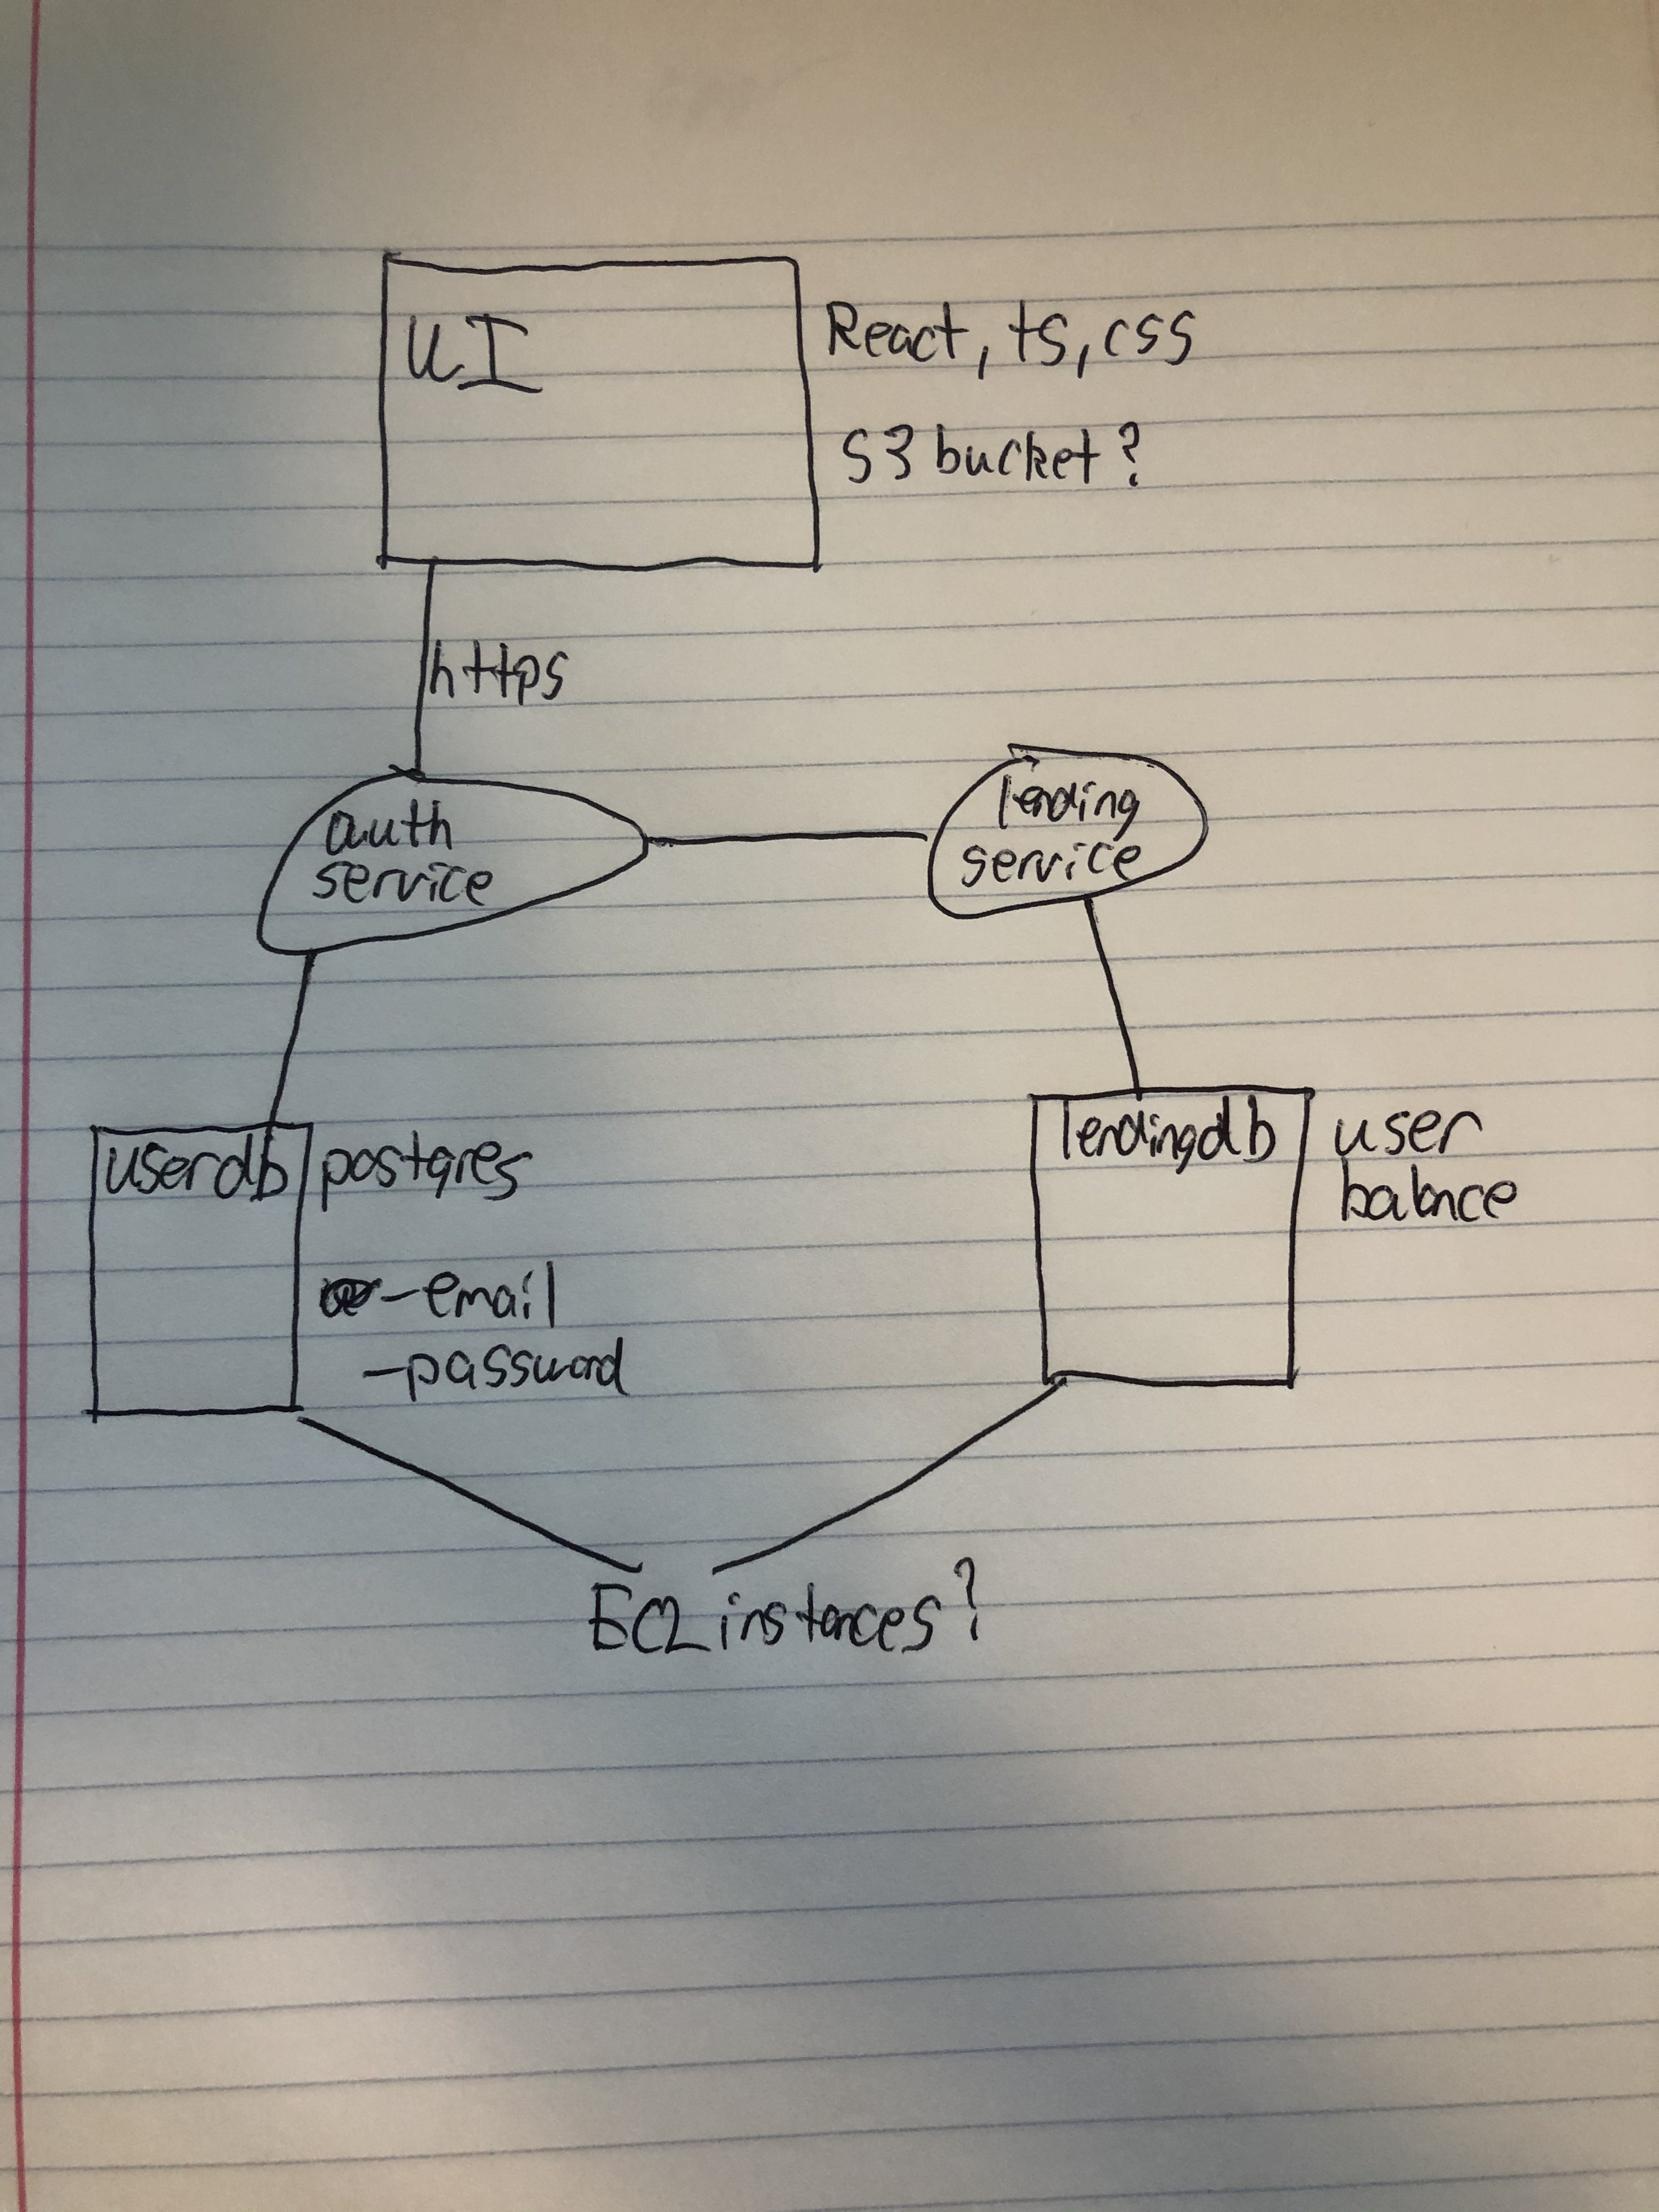 UI
React, ts, css
S3 bucket?
https
auth
service
lending
service
userdb
postgres
-email
-password
lendingdb
user
balance
EC2 instances?